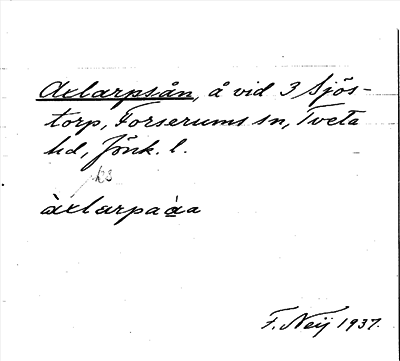 Axlarpsån, å vid 3 Sjös-
torp, Forserums sn, Tveta
hd, Jönk. l.
àxlarpaa̱a
F. Neij 1937.